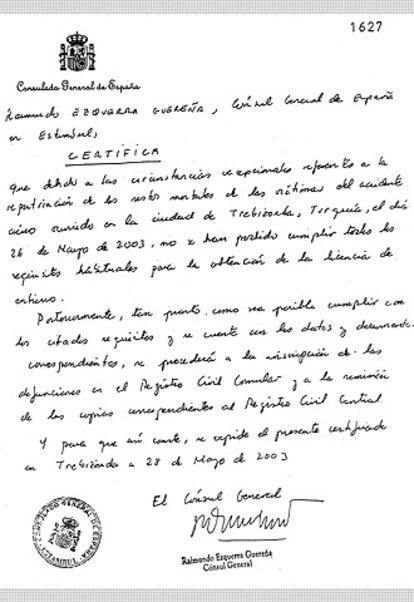 1627
Consulado General de España
Raimundo EZQUERRA GUEREÑA, Cónsul General de España
en Estambul,
CERTIFICA
que debido a las circunstancias excepcionales referentes a la
repatriación de los restos mortales de las víctimas del accidente
aéreo ocurrido en la ciudad de Trebizonda, Turquía, el día
26 de Mayo de 2003, no se han podido cumplir todos los
requisitos habituales para la obtención de la licencia de
entierro.
Posteriormente, tan pronto como sea posible cumplir con
los citados requisitos y se cuente con los datos y documentos
correspondientes, se procederá a la inscripción de las
defunciones en el Registro Civil Consular y a la remisión
de las copias correspondientes al Registro Civil Central
Y para que así conste, se expide el presente certificado
en Trebizonda a 28 de Mayo de 2003
El Cónsul General
CONSULADO GENERAL DE ESPAÑA
ESTAMBUL
Raimundo Ezquerra Guereña
Cónsul General